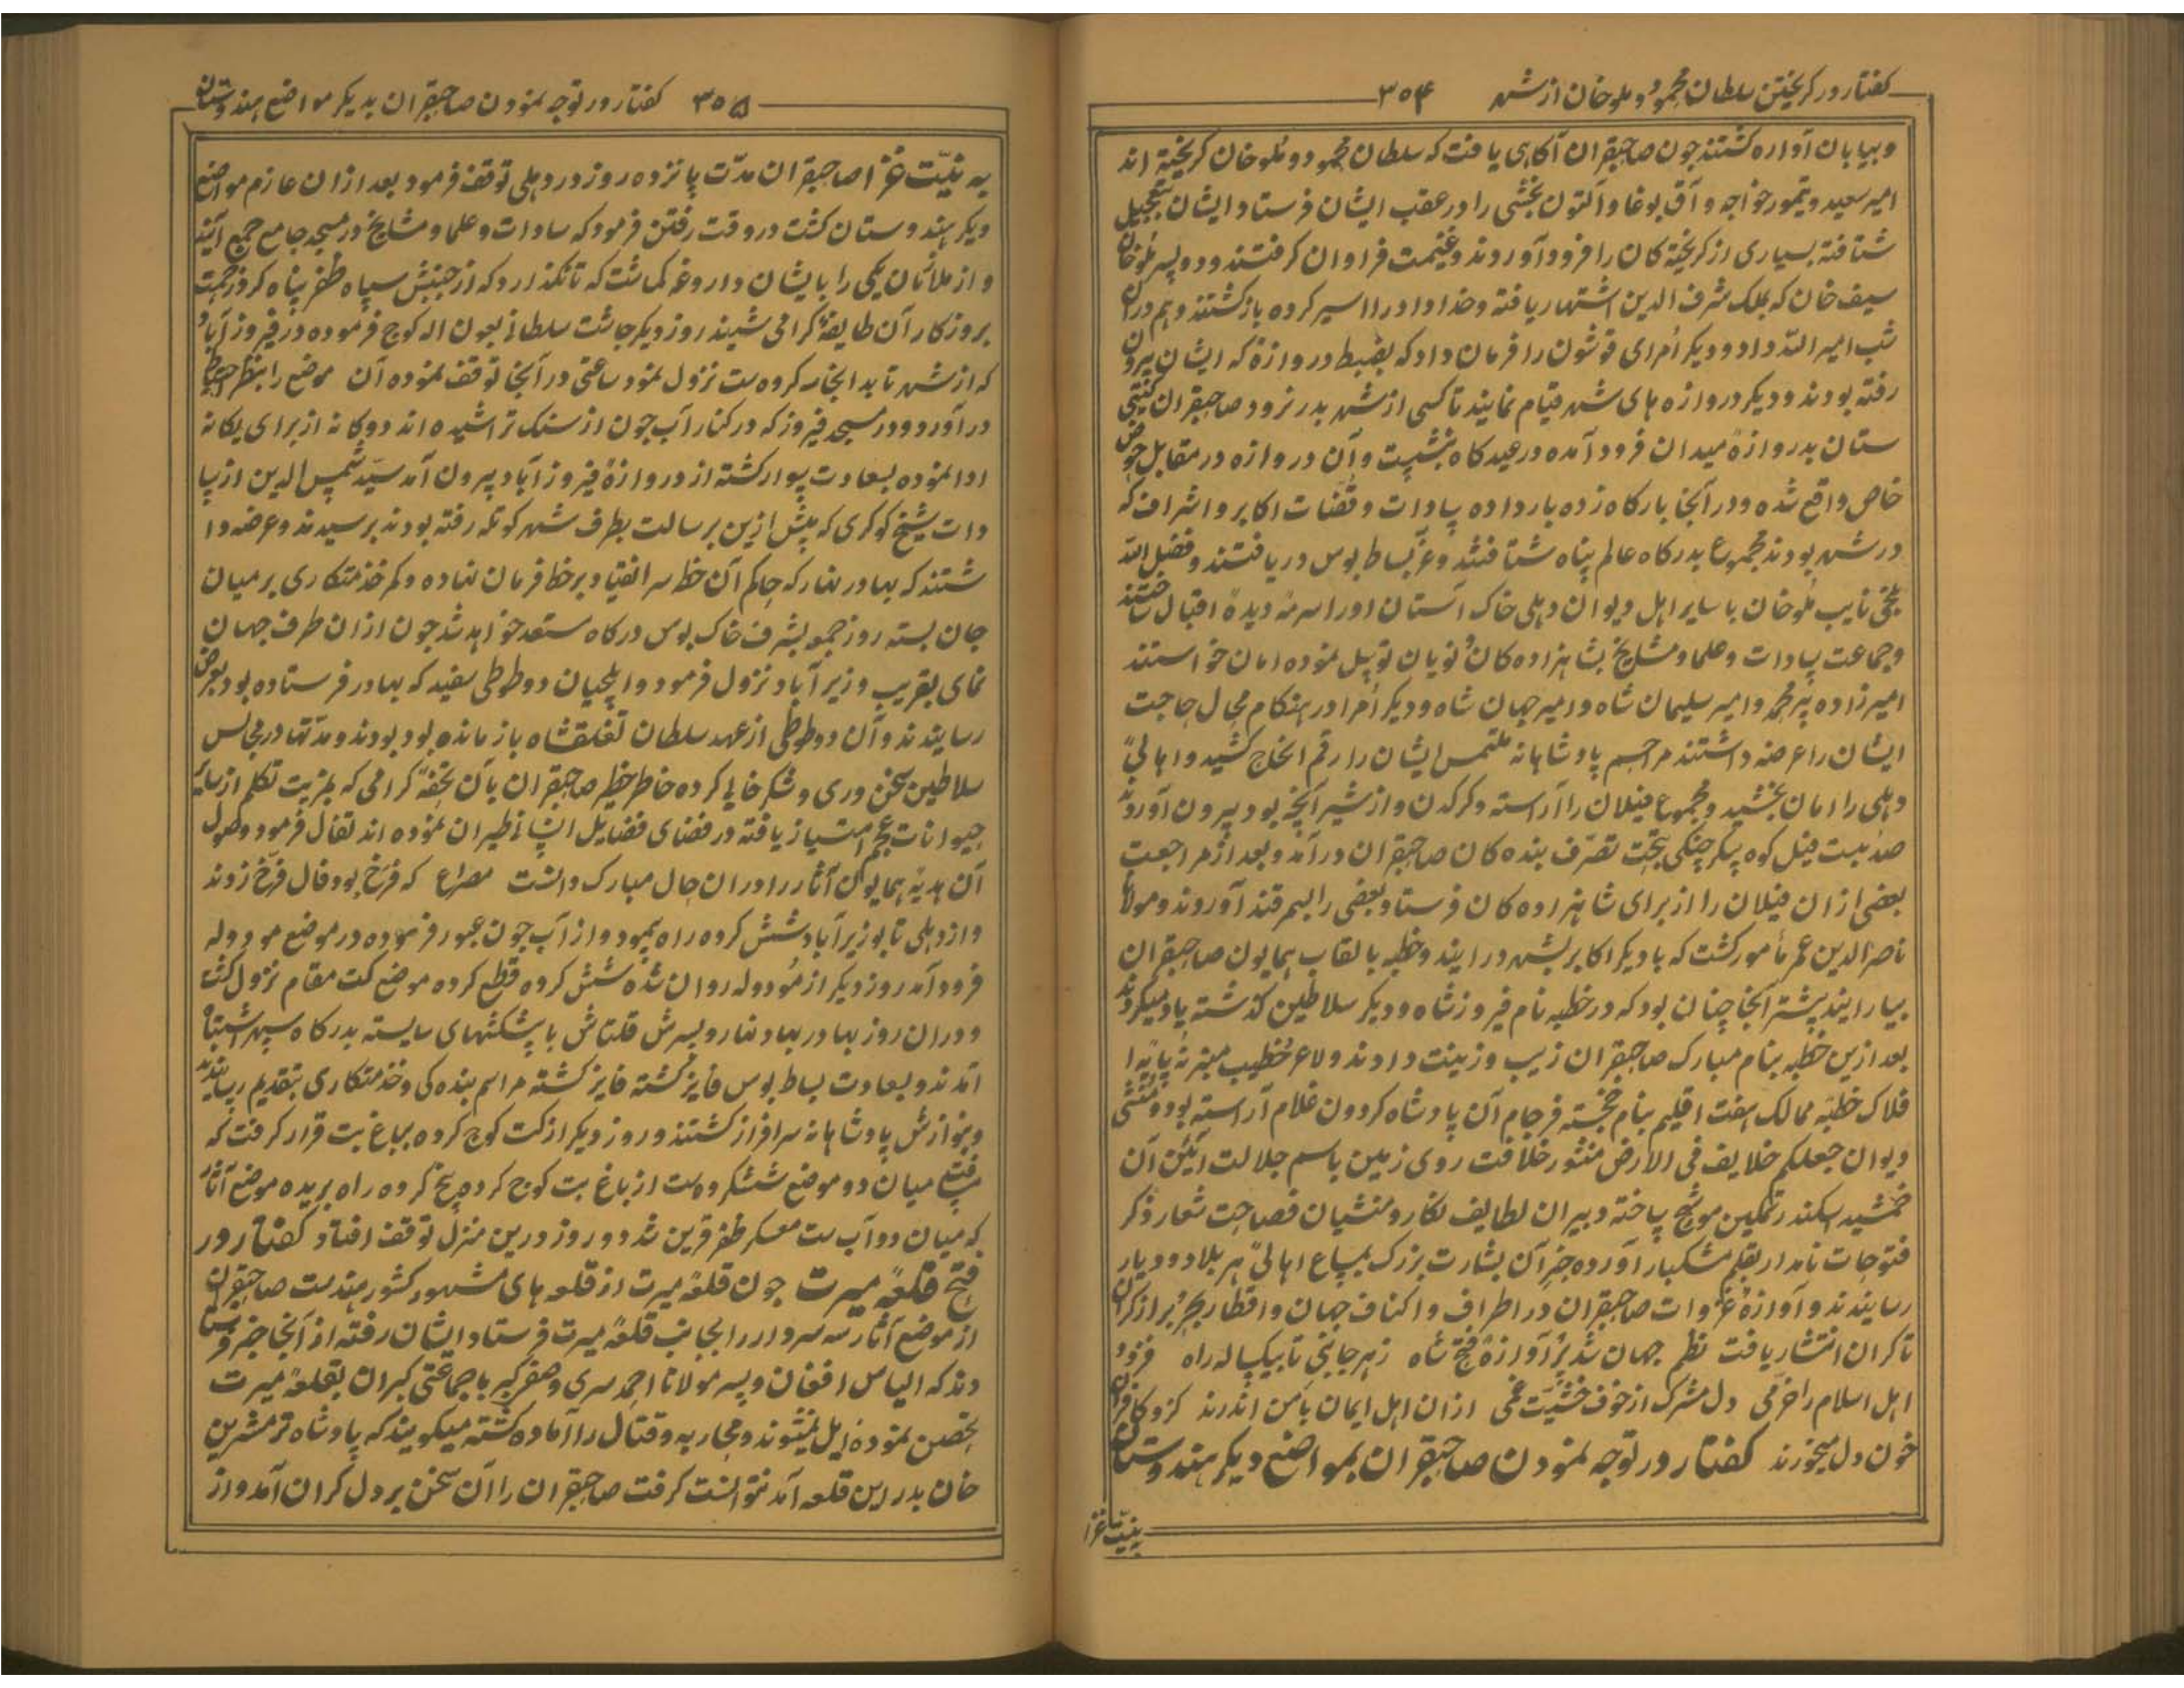 کفتار در کریختن سلطان محمود و ملوخان از شهر ۳۵۴
و بیابان آواره کشتند چون صاحبقران آکاهی یافت که سلطان محمود و ملوخان کریخته اند
امیر سعید و تیمور خواجه و آق بوغا و آلتون بخشی را در عقب ایشان فرستاد ایشان بتعجیل
شتافته بسیاری از کریخته کان را فرود آوردند و غنیمت فراوان کرفتند و دو پسر ملوخان
سیف خان که بملک شرف الدین اشتهار یافته و خداداد را اسیر کرده بازکشتند و هم در آن
شب امیر الله داد و دیکر اُمرای قوشون را فرمان داد که بضبط دروازهٔ که ایشان بیرون
رفته بودند و دیکر دروازه های شهر قیام نمایند تا کسی از شهر بدر نرود صاحبقران کیتی
ستان بدروازهٔ میدان فرود آمده در عیدکاه بنشست و آن دروازه در مقابل حوض
خاص واقع شده و در آنجا بارکاه زده بار داده سادات و قضات اکابر و اشراف که
در شهر بودند مجموع بدرکاه عالم پناه شتافتند و عزّ بساط بوس دریافتند و فضل الله
بلخی نایب ملوخان با سایر اهل دیوان دهلی خاک آستان او را سرمهٔ دیدهٔ اقبال ساختند
و جماعت سادات و علما و مشایخ بشاهزاده کان و نویان توسل نموده امان خواستند
امیرزاده پیر محمد و امیر سلیمان شاه و امیر جهان شاه و دیکر اُمرا در هنکام مجال حاجت
ایشان را عرضه داشتند مراحم پادشاهانه ملتمس ایشان را رقم انجاح کشید و اهالی
دهلی را امان بخشید و مجموع فیلان را آراسته و کرکدن و از شیر آنچه بود بیرون آوردند
صد بیست فیل کوه پیکر جنکی بتحت تصرّف بنده کان صاحبقران درآمد و بعد از مراجعت
بعضی از ان فیلان را از برای شاهزاده کان فرستاد بعضی را بسمرقند آوردند و مولانا
ناصر الدین عمر مأمور کشت که با دیکر اکابر بشهر درایند و خطبه بالقاب همایون صاحبقران
بیارایند پیشتر آنجا چنان بود که در خطبه نام فیروزشاه و دیکر سلاطین کذشته یاد میکردند
بعد ازین خطبه بنام مبارک صاحبقران زیب و زینت دادند خطیب منبر نُه پایهٔ ا
فلاک خطبهٔ ممالک هفت اقلیم بنام خجسته فرجام آن پادشاه کردون غلام آراسته بود و منشی
دیوان جعلکم خلایف فی الارض منثور خلافت روی زمین باسم جلالت آئین آن
جمشید اسکندر تمکین موشّح ساخته دبیران لطایف نکار و منشیان فصاحت شعار ذکر
فتوحات نامدار بقلم مشکبار آورده خبر آن بشارت بزرک بمسامع اهالی هر بلاد و دیار
رسانیدند و آوازهٔ غزوات صاحبقران در اطراف و اکناف جهان و اقطار بحر و بر از کران
تا کران انتشار یافت نظم جهان شد پُر آوازهٔ فتح شاه زهر جانبی تا بیکساله راه فزود
اهل اسلام را خرّمی دل مشرک از خوف خشیّت غمی ازان اهل ایمان بامن اندرند کزو کافران
خون دل میخورند کفتار در توجه نمودن صاحبقران بمواضع دیکر هندوستان
بنیت غزا
۳۵۵ کفتار در توجه نمودن صاحبقران بدیکر مواضع هندوستان
به نیّت غزا صاحبقران مدّت پانزده روز در دهلی توقف فرمود بعد ازان عازم مواضع
دیکر هندوستان کشت در وقت رفتن فرمود که سادات و علما و مشایخ در مسجد جامع جمع آیند
و از ملازمان یکی را بایشان داروغه کماشت که تا نکذارد که از جنبش سپاه ظفر پناه کرد زحمت
بروزکار آن طایفهٔ کرامی نشیند روز دیکر چاشت سلطانی بعون اله کوچ فرموده در فیروز آباد
که از شهر تا بد انجا سه کروه ست نزول نمود ساعتی در آنجا توقف نموده آن موضع را بنظر احتیاط
درآورد و در مسجد فیروز که در کنار آب جون از سنک تراشیده اند دوکانه از برای یکانه
ادا نموده بسعادت سوار کشته از دروازهٔ فیروزآباد بیرون آمد سیّد شمس الدین از سا
دات شیخ کوکری که پیش ازین برسالت بطرف شهر کوتله رفته بودند برسیدند و عرضه دا
شتند که بهادر نهار که حاکم آن خطه سر انقیاد بر خط فرمان نهاده و کمر خدمتکاری بر میان
جان بسته روز جمعه بشرف خاک بوس درکاه مستعد خواهد شد چون ازان طرف جهان
نمای بقریب وزیر آباد نزول فرمود و ایلچیان دو طوطی سفید که بهادر فرستاده بود بعرض
رسانیدند و آن دو طوطی از عهد سلطان تغلقشاه باز مانده بود بودند و مدّتها در مجالس
سلاطین سخن وری و شکر خایی کرده خاطر خطیر صاحبقران بآن تحفهٔ کرامی که بمزیت تکلم از سایر
حیوانات عجم امتیاز یافته در فضای فضایل انسانی طیران نموده اند تفال فرمود و وصول
آن هدیهٔ همایون آثار را دران حال مبارک دانست مصراع که فرّخ بود فال فرّخ زدند
و از دهلی تا بوزیرآباد شش کرده راه بپمود و از آب جون عبور فرموده در موضع مودوله
فرود آمد روز دیکر از مُودوله روان شده شش کروه قطع کرده موضع کت مقام نزول کشت
و دران روز بهادر بهاد نهار و پسرش قلتاش با پشکشهای سایسته بدرکاه سپهر اشتباه
آمدند و بسعادت بساط بوس فایز کشته فایز کشته مراسم بنده کی و خدمتکاری بتقدیم رسانیدند
و بنوازش پادشاهانه سرافراز کشتند و روز دیکر از کت کوچ کرده بباغ بت قرار کرفت که
مسافت میان دو موضع ششکروه ست از باغ بت کوچ کرده پنج کروه راه بریده موضع آثار
که میان دو آب ست معسکر ظفر قرین شد دو روز درین منزل توقف افتاد کفتار در
فتح قلعهٔ میرت چون قلعهٔ میرت از قلعه های مشهور کشور هندست صاحبقران
از موضع آثار سه سردار را بجانب قلعهٔ میرت فرستاد ایشان رفته از آنجا خبر فرستا
دند که الیاس افغان و پسر مولانا احمد سری و صفر کبر با جماعتی کبران بقلعهٔ میرت
تحصن نموده ایل نمیشوند و محاربه و قتال را آماده کشته میکویند که پادشاه ترمشرین
خان بدر این قلعه آمد نتوانست کرفت صاحبقران را آن سخن بر دل کران آمد و از